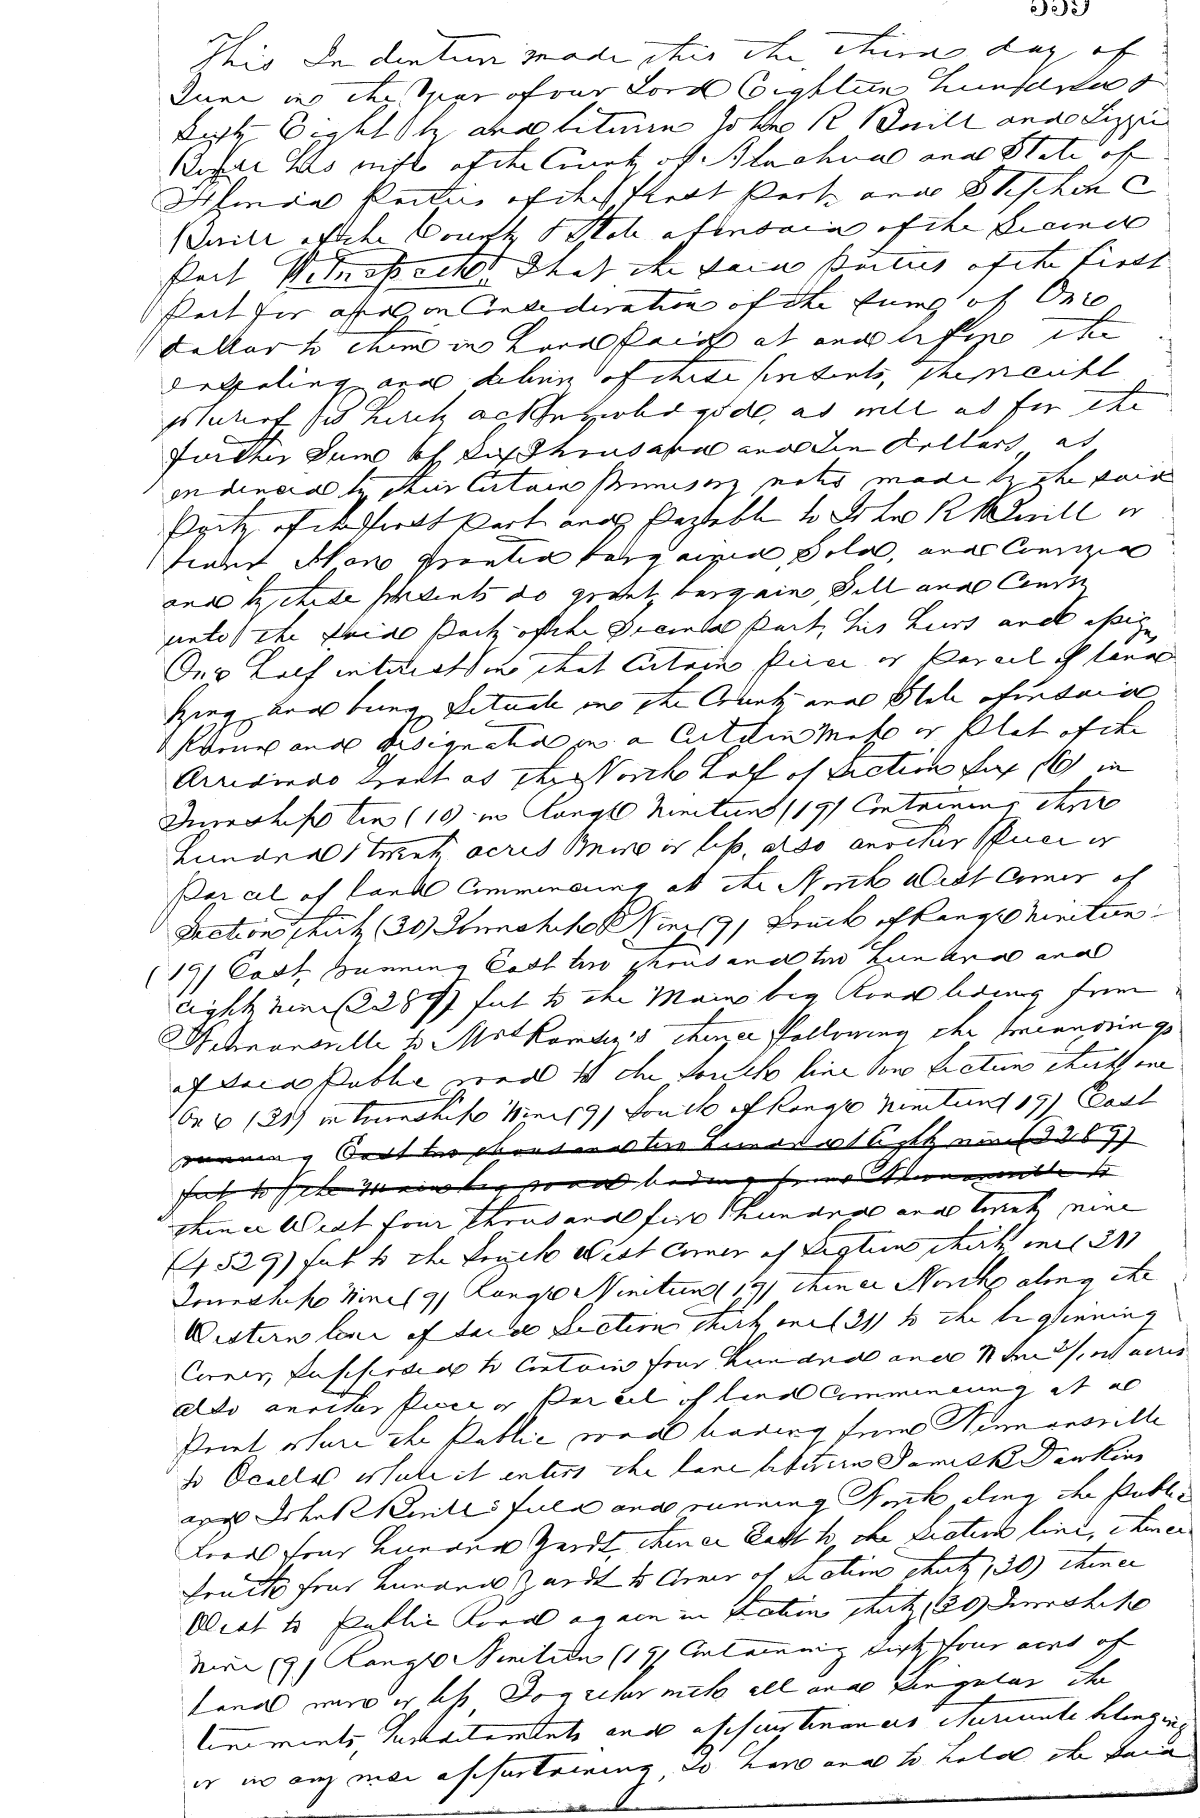 559
This Indenture made this the third day of
June in the Year of our Lord Eighteen hundred &
Sixty Eight by and between John R and Lizzie
his wife of the County of Alachua and State of
Florida Parties of the first Part and Stephen C
of the County & State aforesaid of the Second
Part Witnesseth That the said parties of the first
Part for and in Consideration of the sum of One
dollar to them in hand Paid at and before the
ensealing and delivery of these presents, the receipt
whereof is hereby acknowledged, as well as for the
further Sum of Six Thousand and Ten dollars, as
evidenced by their Certain Promisory notes made by the said
Party of the first Part and Payable to John R or
bearer Have granted bargained, Sold, and Conveyed
and by these presents do grant, bargain, Sell and Convey
unto the said Party of the Second Part, his heirs and assigns
One half interest in that Certain Piece or Parcel of land
lying and being Situate in the County and State aforesaid
Known and designated in a Certain Map or Plat of the
Arredondo Grant as the North half of Section Six (6) in
Township ten (10) in Range Nineteen (19) Containing three
hundred & twenty acres More or less, also another Piece or
Parcel of land Commencing at the North West Corner of
Section thirty (30) Township Nine (9) South of Range Nineteen
(19) East, running East two thousand two hundred and
eighty nine (2289) feet to the Main big Road leading from
Newnansville to Mrs Ramsey's thence following the meanderings
of said Public road to the South line in Section thirty one
One (31) in township Nine (9) South of Range Nineteen (19) East
running East two thousand two hundred & Eighty nine (2289)
feet to the Main big road leading from Newnansville to
thence West four thousand five hundred and twenty nine
(4529) feet to the South West Corner of Section thirty one (31)
Township Nine (9) Range Nineteen (19) thence North along the
Western line of said Section thirty one (31) to the beginning
Corner, Supposed to Contain four hundred and Nine acres
also another Piece or Parcel of land Commencing at a
Point where the Public road leading from Newnansville
to Ocala where it enters the lane between James B Dawkins
and John R field and running North, along the Public
Road four hundred Yards, thence East to the Section line, thence
South four hundred Yards to Corner of Section thirty (30) thence
West to Public Road again in Section thirty (30) Township
Nine (9) Range Nineteen (19) Containing Sixty four acres of
land more or less, Together with all and Singular the
tenements, hereditaments and appurtenances thereunto belonging
or in any wise appertaining, To have and to hold the said